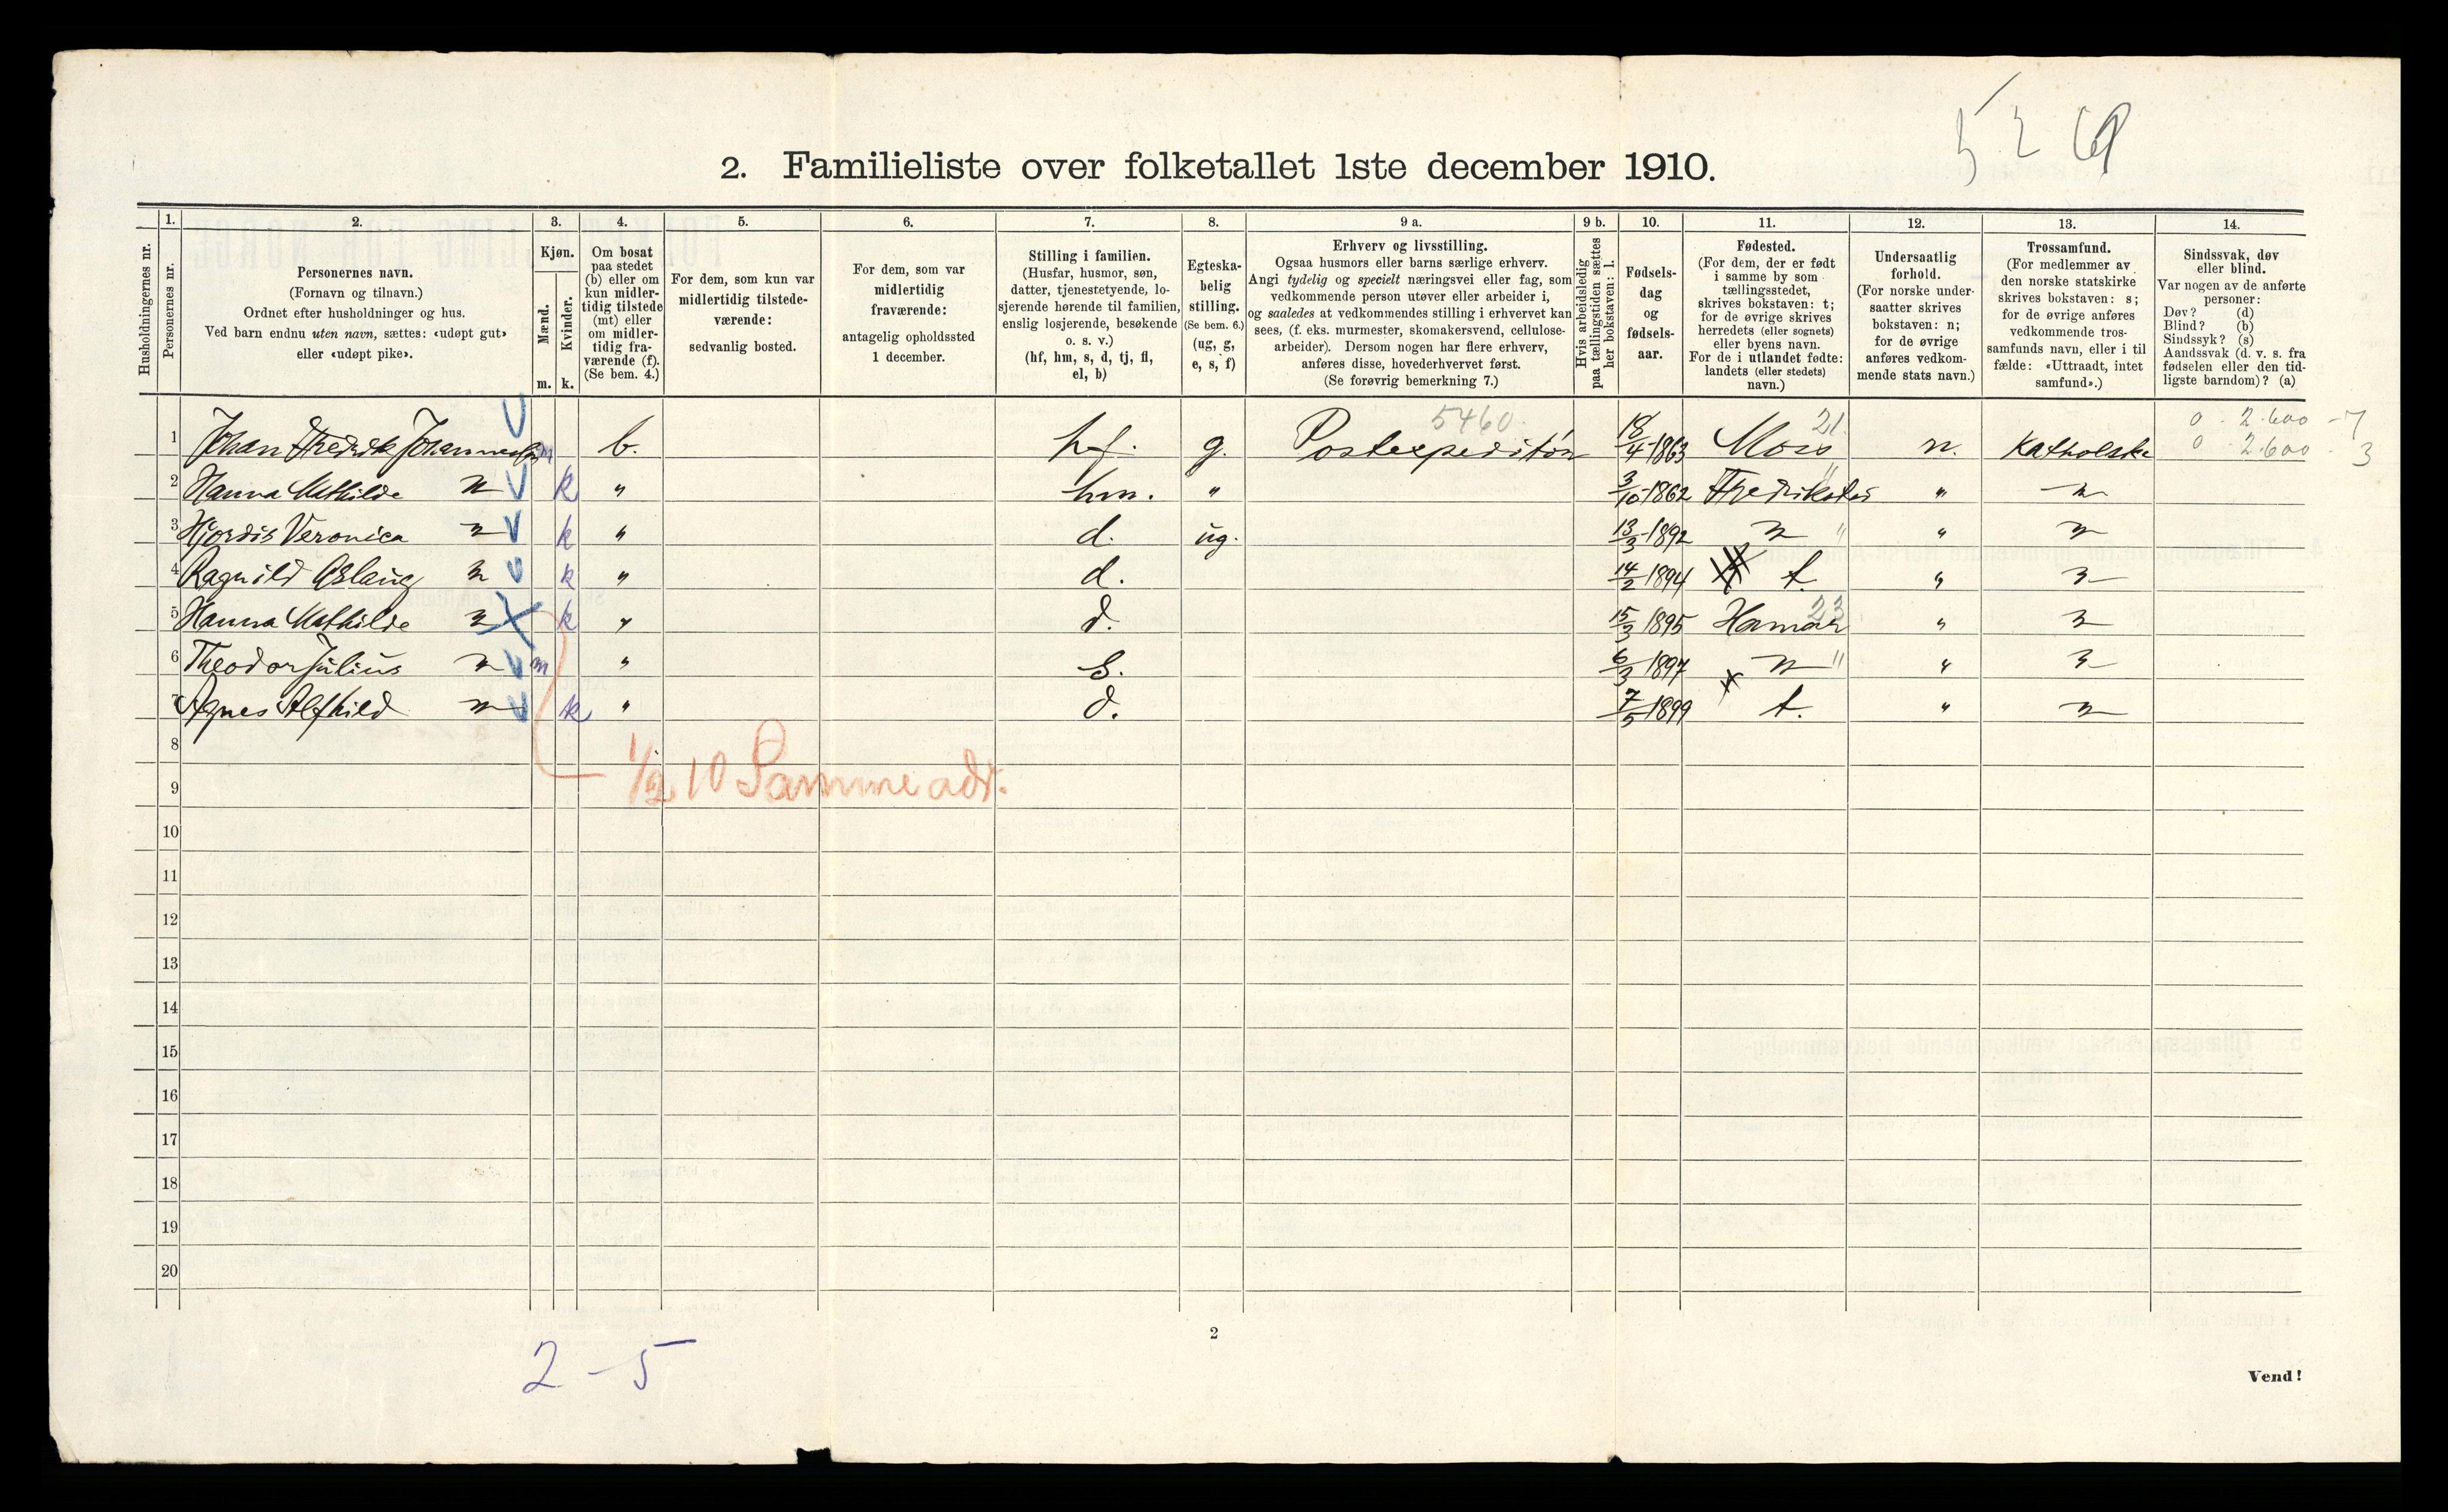 5 2 69
2. Familieliste over folketallet 1ste december 1910.
Husholdningernes nr.
1.
Personernes nr.
2.
Personernes navn.
(Fornavn og tilnavn.)
Ordnet efter husholdninger og hus.
Ved barn endnu uten navn, sættes: «udøpt gut»
eller «udøpt pike».
3.
Kjøn.
Mænd.
Kvinder.
m. k.
4.
Om bosat
paa stedet
(b) eller om
kun midler-
tidig tilstede
(mt) eller
om midler-
tidig fra-
værende (f).
(Se bem. 4.)
5.
For dem, som kun var
midlertidig tilstede-
værende:
sedvanlig bosted.
6.
For dem, som var
midlertidig
fraværende:
antagelig opholdssted
1 december.
7.
Stilling i familien.
(Husfar, husmor, søn,
datter, tjenestetyende, lo-
sjerende hørende til familien,
enslig losjerende, besøkende
o. s. v.)
(hf, hm, s, d, tj, fl,
el, b)
8.
Egteska-
belig
stilling.
(Se bem. 6.)
(ug, g,
e, s, f)
9 a.
Erhverv og livsstilling.
Ogsaa husmors eller barns særlige erhverv.
Angi tydelig og specielt næringsvei eller fag, som
vedkommende person utøver eller arbeider i,
og saaledes at vedkommendes stilling i erhvervet kan
sees, (f. eks. murmester, skomakersvend, cellulose-
arbeider). Dersom nogen har flere erhverv,
anføres disse, hovederhvervet først.
(Se forøvrig bemerkning 7.)
9 b.
Hvis arbeidsledig
paa tællingstiden sættes
her bokstaven: l.
10.
Fødsels-
dag
og
fødsels-
aar.
11.
Fødested.
(For dem, der er født
i samme by som
tællingsstedet,
skrives bokstaven: t;
for de øvrige skrives
herredets (eller sognets)
eller byens navn.
For de i utlandet fødte:
landets (eller stedets)
navn.)
12.
Undersaatlig
forhold.
(For norske under-
saatter skrives
bokstaven: n;
for de øvrige
anføres vedkom-
mende stats navn.)
13.
Trossamfund.
(For medlemmer av
den norske statskirke
skrives bokstaven: s;
for de øvrige anføres
vedkommende tros-
samfunds navn, eller i til
fælde: «Uttraadt, intet
samfund».)
14.
Sindssvak, døv
eller blind.
Var nogen av de anførte
personer:
Døv? (d)
Blind? (b)
Sindssyk? (s)
Aandssvak (d. v. s. fra
fødselen eller den tid-
ligste barndom)? (a)
5460. 21. 0 - 2.600 - 7
1 Johan Fredrik Johannesen m b. hf. g. Postexpeditør 18/4-1863 Moss n. Katholske 0 2.600 - 3
2 Hanna Mathilde n k " hm. " 3/10-1862 Fredrikstad " " n
3 Hjordis Veronica n k " d. ug. 13/3-1892 n " " n
4 Ragnild Aslaug n k " d. 14/2 1894 t " n
5 Hanna Mathilde n k " d. 15/3 1895 Hamar 23 " n
6 Theodor Julius n m " s. 6/3 1897 n " " n
7 Agnes Alfhild n k " d. 7/5-1899 t. " n
8
1/2 10 Samme adr.
9
10
11
12
13
14
15
16
17
18
19
20
2
2 - 5
Vend!